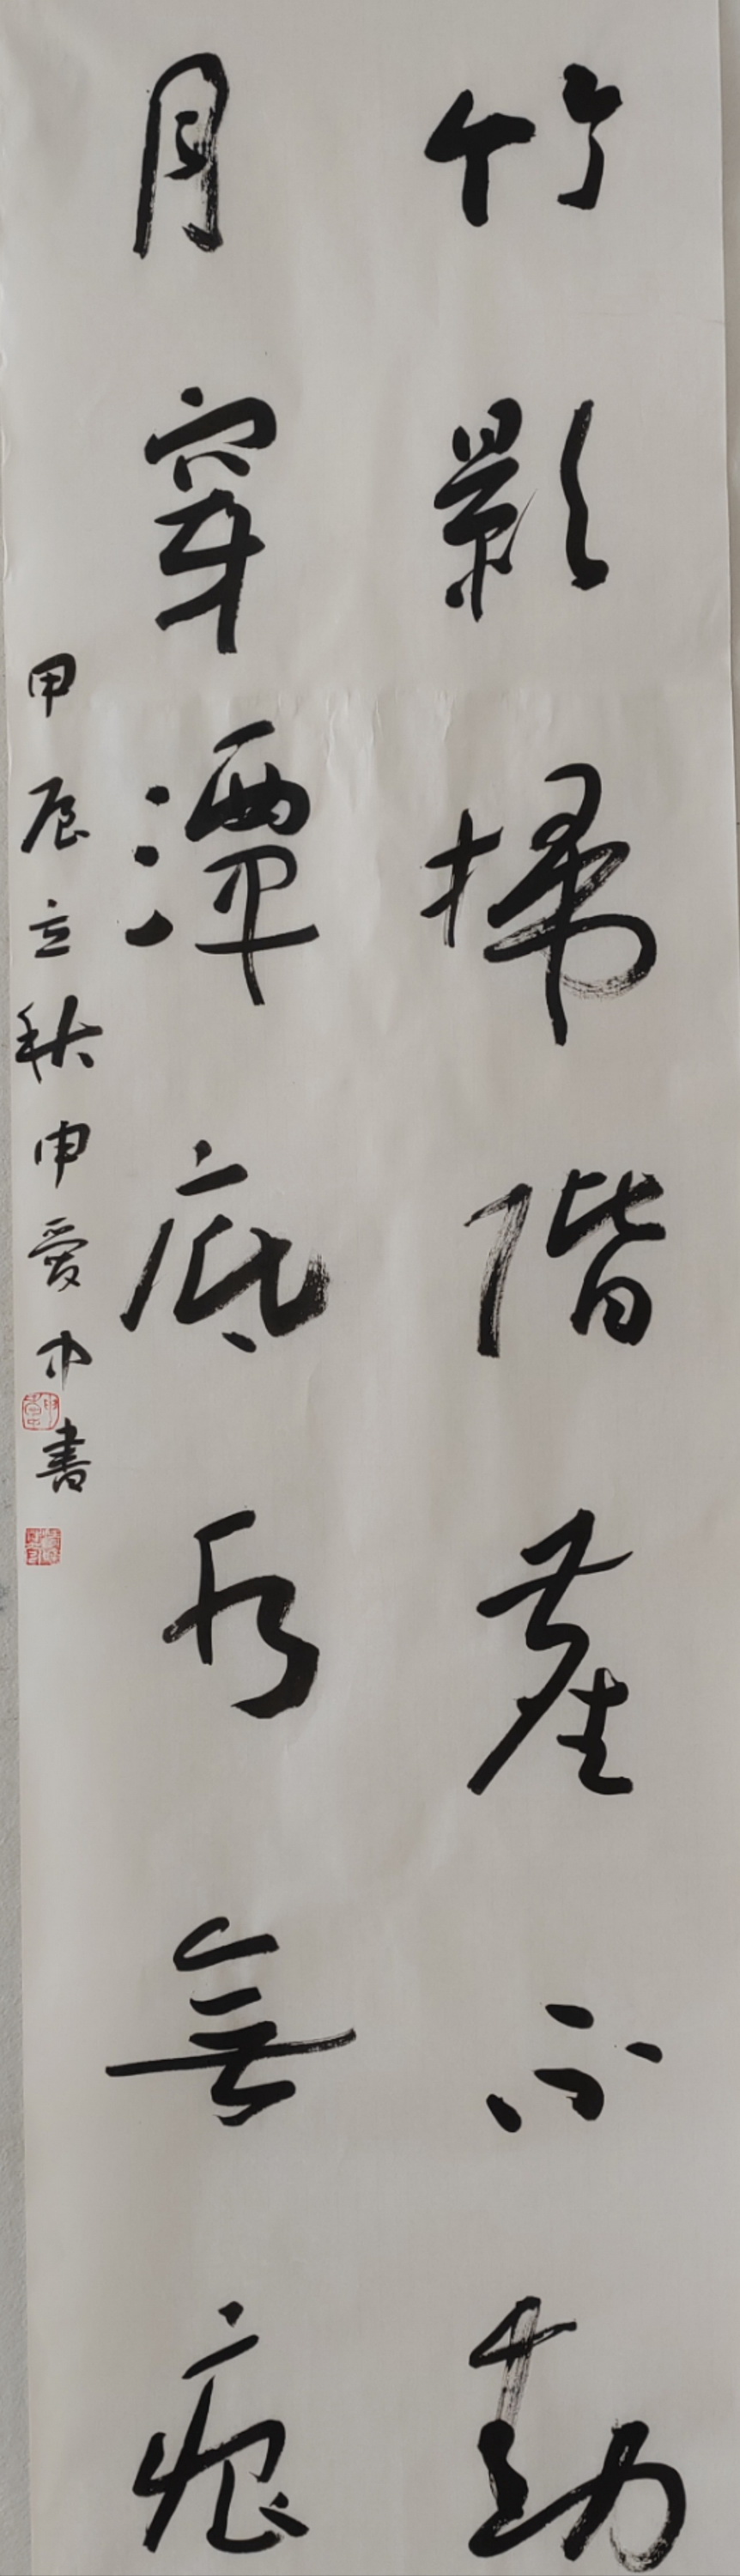 竹影掃階塵不動
月穿潭底水無痕
甲辰立秋申愛中書